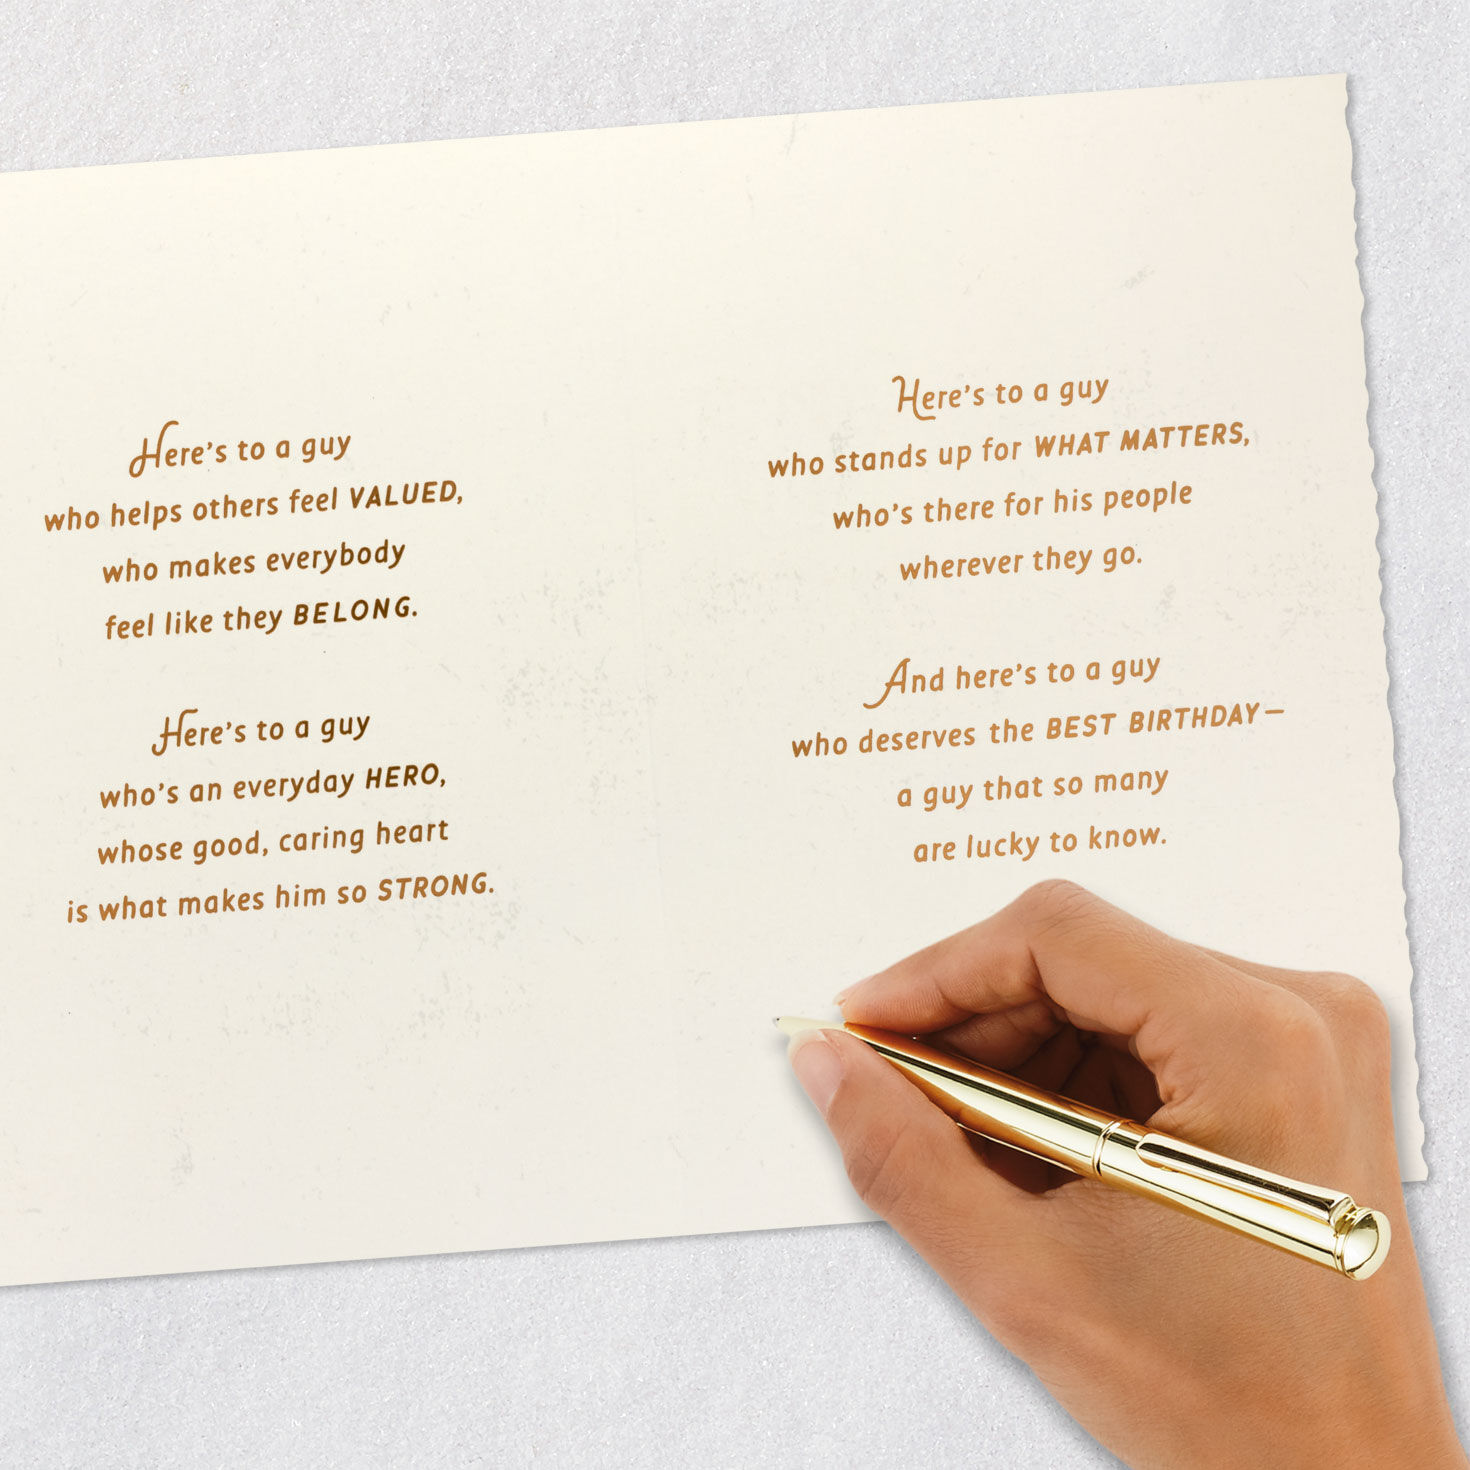 Here's to a guy
who helps others feel VALUED,
who makes everybody
feel like they BELONG.
Here's to a guy
who's an everyday HERO,
whose good, caring heart
is what makes him so STRONG.
Here's to a guy
who stands up for WHAT MATTERS,
who's there for his people
wherever they go.
And here's to a guy
who deserves the BEST BIRTHDAY—
a guy that so many
are lucky to know.